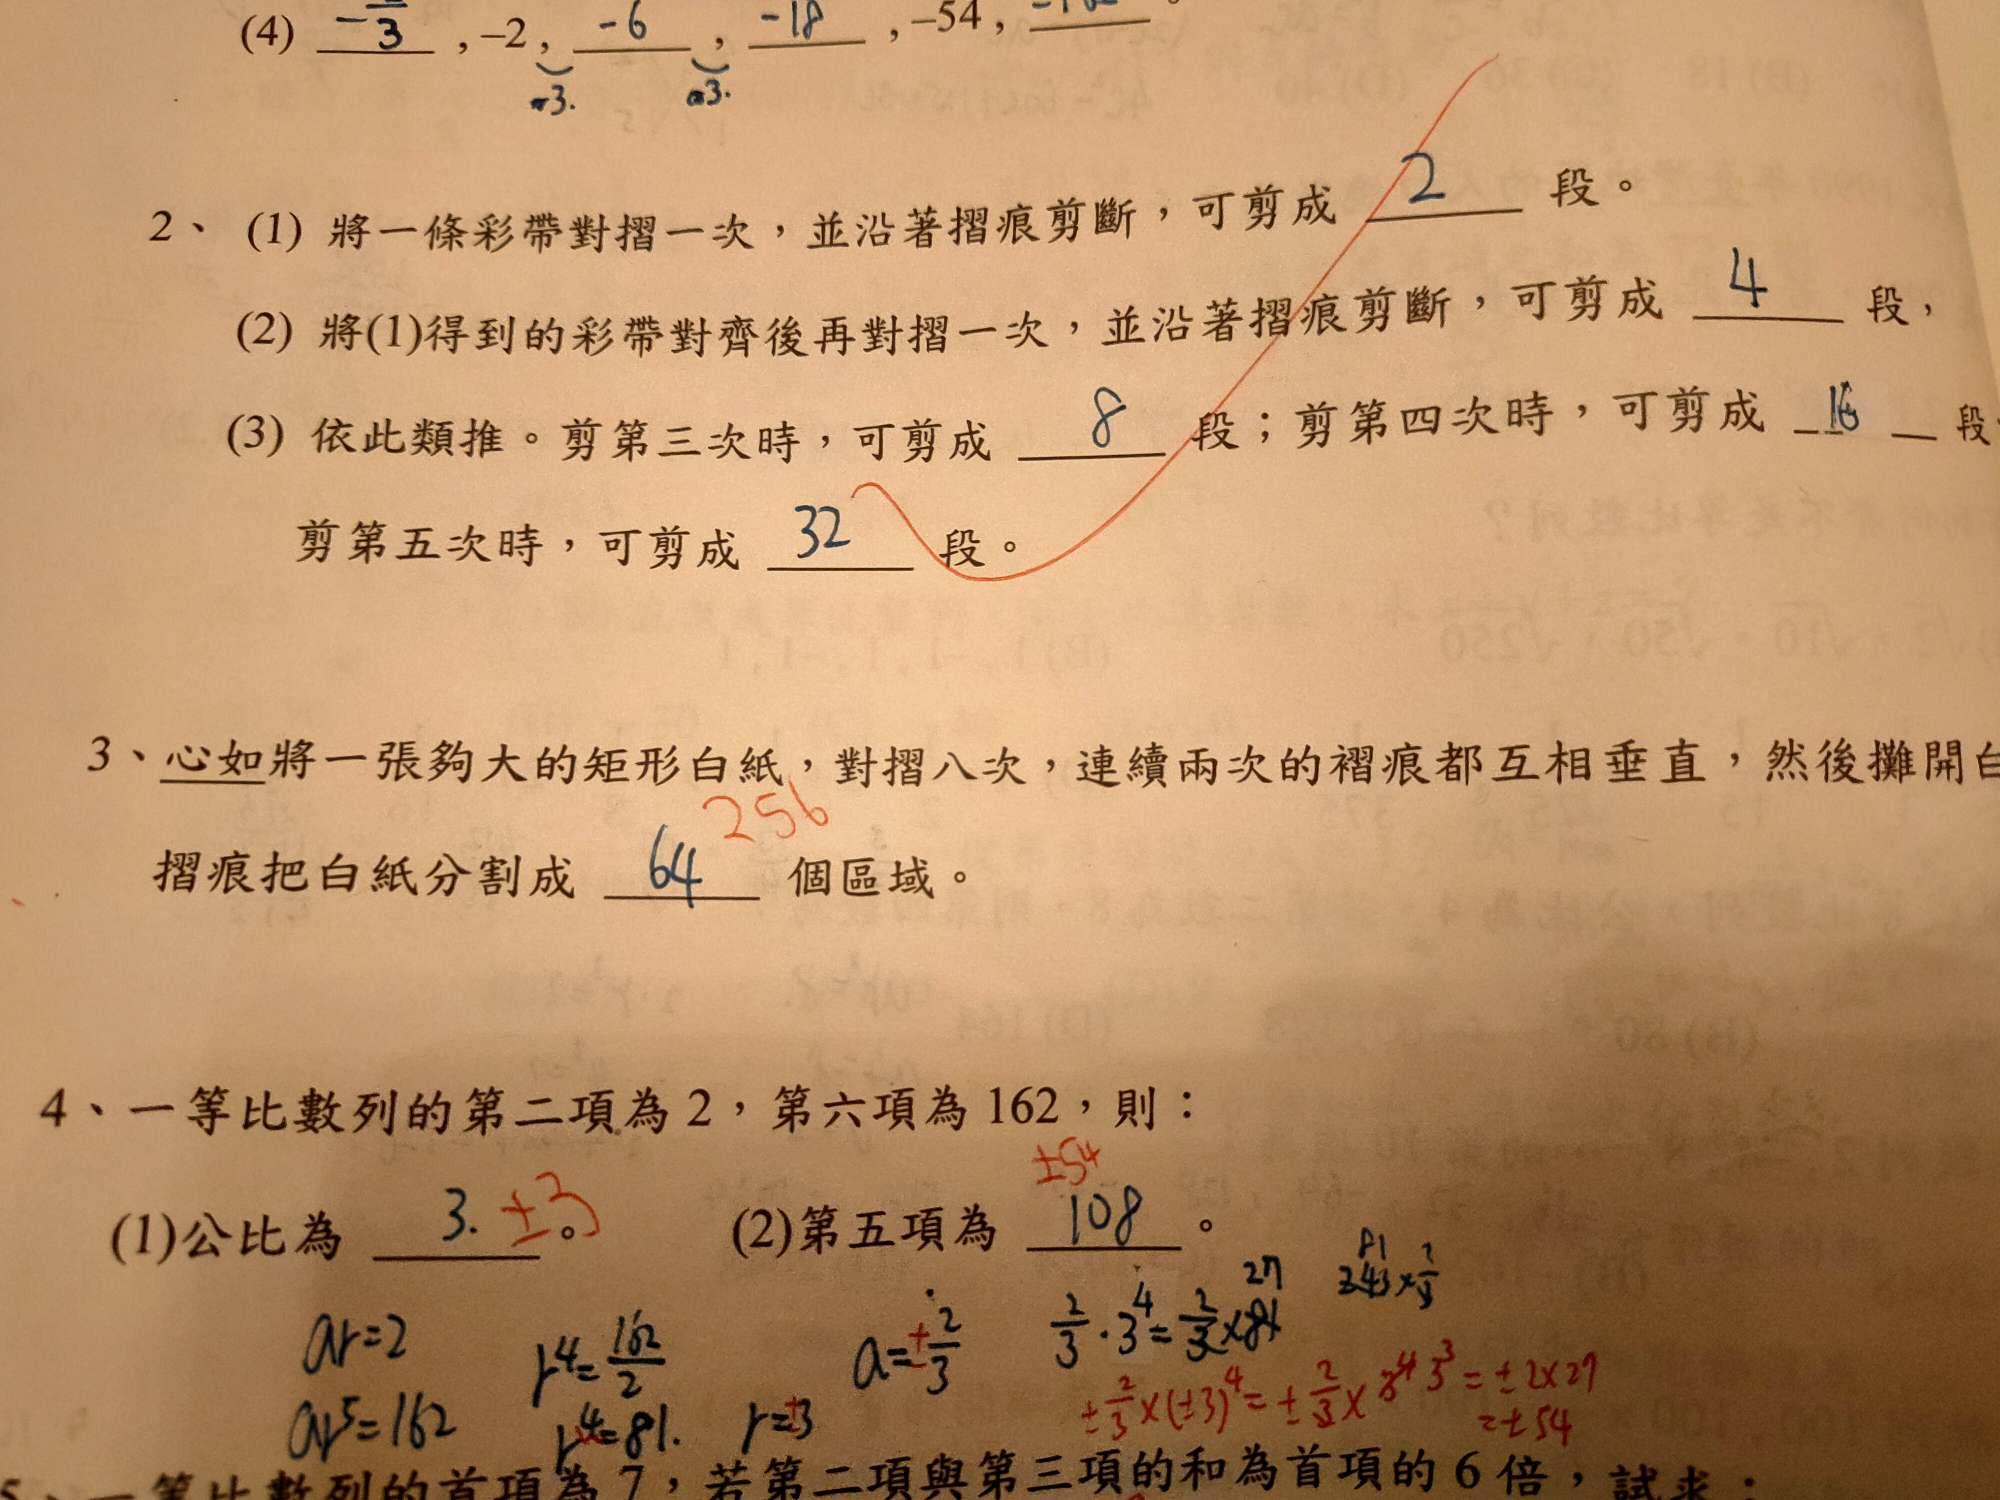 (4) -2/3 , -2 , -6 , -18 , -54 ,
-3. -3.
2、(1) 將一條彩帶對摺一次，並沿著摺痕剪斷，可剪成 2 段。
(2) 將(1)得到的彩帶對齊後再對摺一次，並沿著摺痕剪斷，可剪成 4 段，
(3) 依此類推。剪第三次時，可剪成 8 段；剪第四次時，可剪成 16 段
剪第五次時，可剪成 32 段。
3、心如將一張夠大的矩形白紙，對摺八次，連續兩次的褶痕都互相垂直，然後攤開白
256
摺痕把白紙分割成 64 個區域。
4、一等比數列的第二項為 2，第六項為 162，則：
±54
(1)公比為 3. ±3。 (2)第五項為 108 。
ar=2 r⁴=162/2 a=±2/3 2/3·3⁴=2/3×81 27 81 243×2/3
ar⁵=162 r⁴=81. r=±3 ±2/3×(±3)⁴=±2/3×3⁴ 3³=±2×27
=±54
5、一等比數列的首項為 7，若第二項與第三項的和為首項的 6 倍，試求：